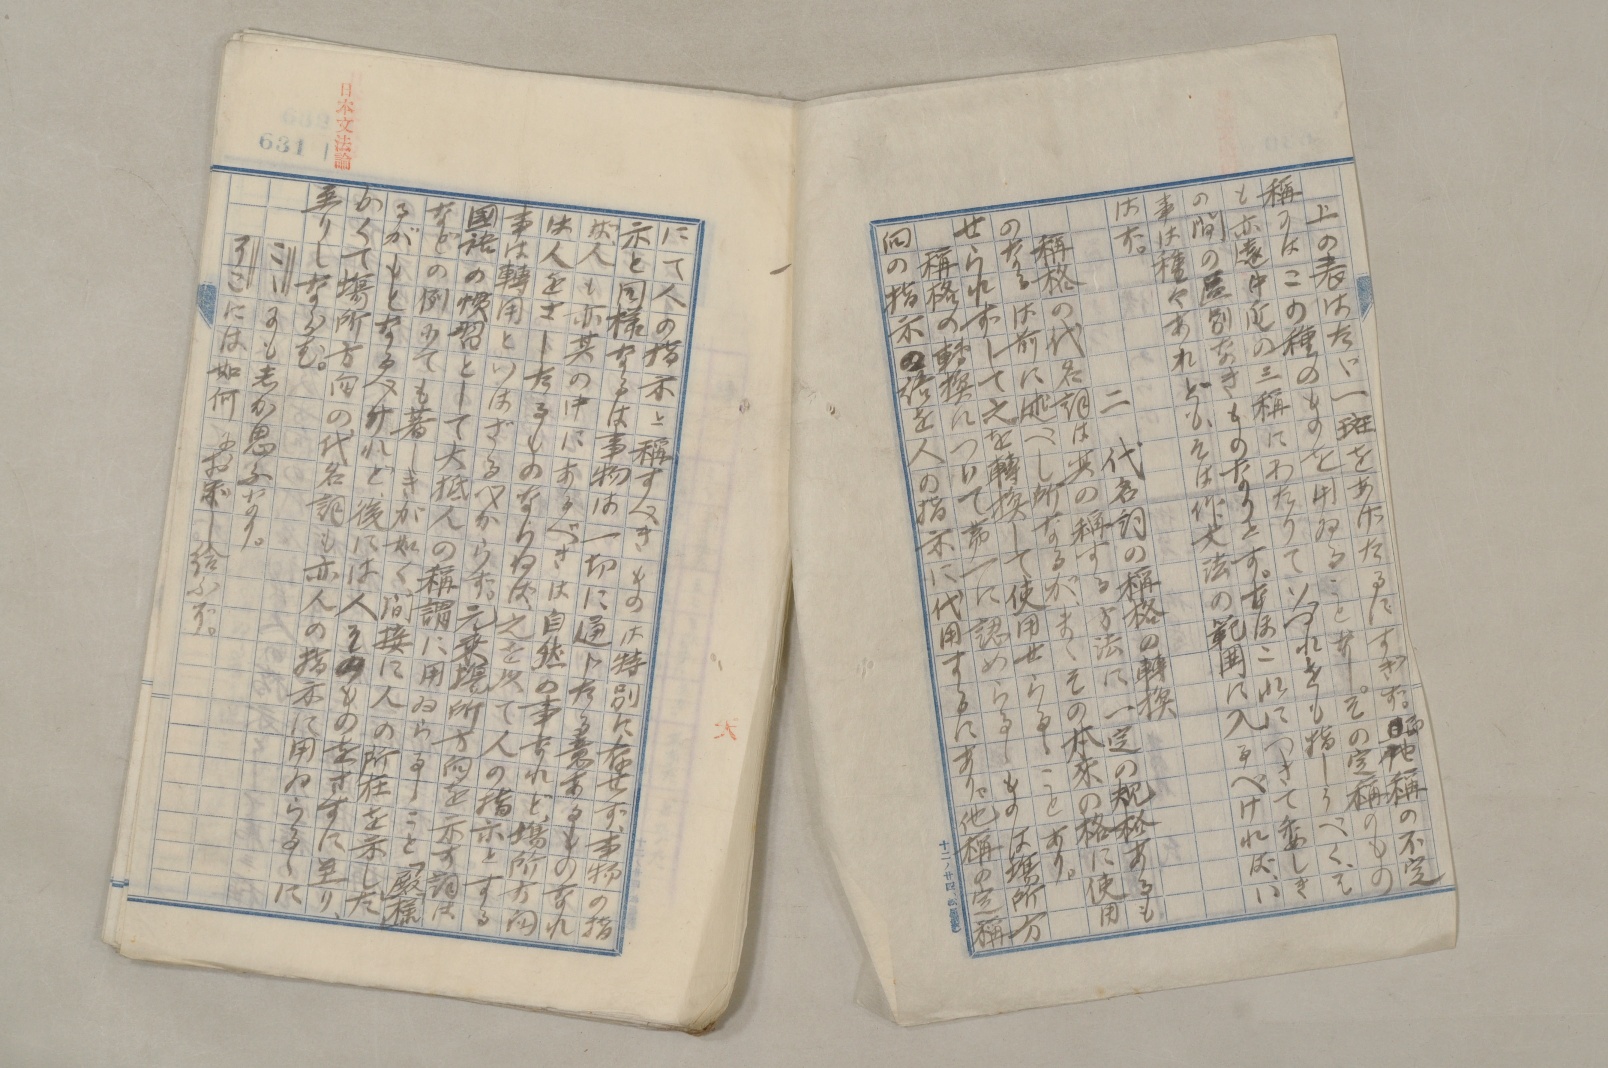 上の表はたゞ一斑をあげたるにすぎず。他稱の不定
稱にはこの種のものを用ゐること少し。その定稱のもの
も亦遠中近の三稱にわたりていづれをも指しうべく、そ
の間の區別なきものなりとす。なほこれにつきて委しき
事は種々あれども、そは作文法の範囲に入るべければ、い
はず。
二 代名詞の稱格の轉換
稱格の代名詞は其の稱する方法に一定の規格あるも
のなるは前に述べし所なるが、まゝその本來の格に使用
せられずして之を轉換して使用せらるゝことあり。
稱格の轉換について第一に認めらるゝものは場所方
向の指示の語を人の指示に代用するにあり。他稱の定稱
日本文法論
631
にて人の指示と稱すべきものは特別に存せず、事物の指
示と同樣なるは事物は一切に通じたる意あるものなれ
ば人も亦其の中にあるべきは自然の事なれど、場所方向
は人をさしたるものならねば、之を以て人の指示とする
事は轉用といはざるべからず。元來場所方向を示す詞は
國語の慣習として大抵人の稱謂に用ゐらるゝこと「殿」「樣」
などの例にても著しきが如く、間接に人の所在を示した
るがもとなるべけれど、後には人そのものをさすに至り、
かくて場所方向の代名詞も亦人の指示に用ゐらるゝに
至りしなるべし。
こゝにも志か思ふなり。
そこには如何におぼし給ふぞ。